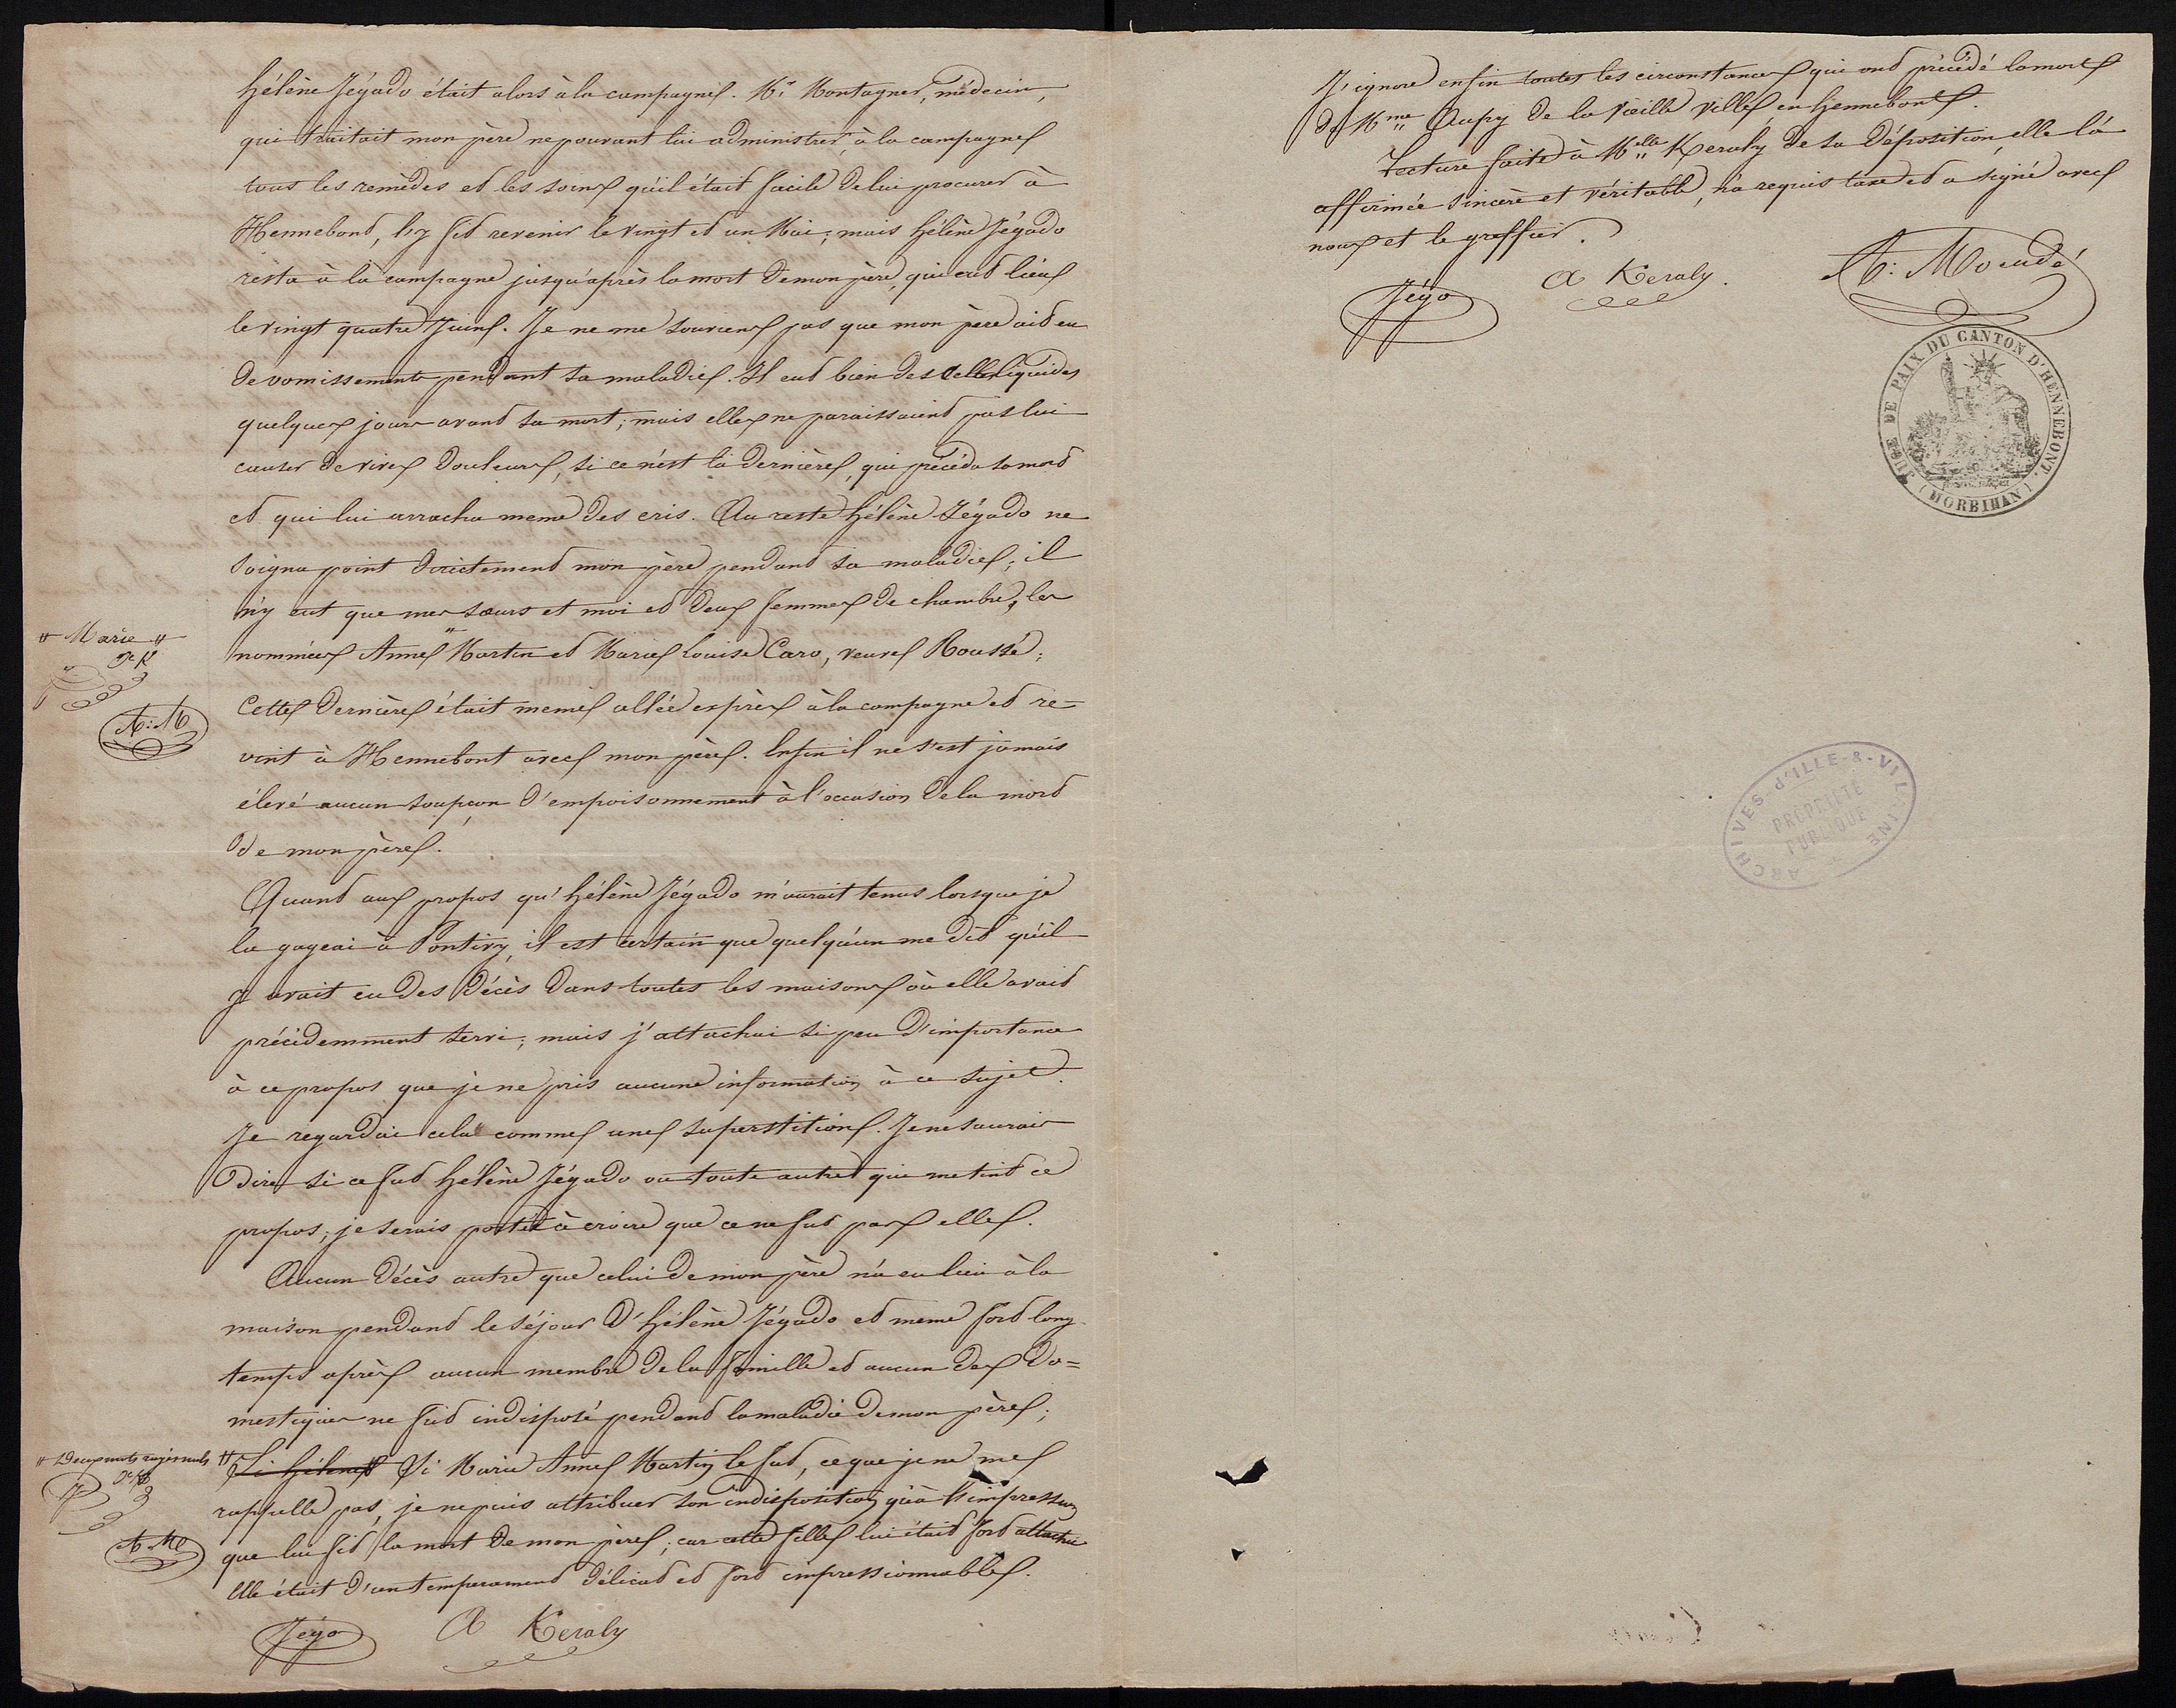 hélène Jégado était alors à la campagne. Mr Montagner, médecin,
qui traitait mon père ne pouvant lui administrer, à la campagne
tous les remèdes et les soins qu'il était facile de lui procurer à
Hennebont, l'y fit revenir le vingt et un Mai; mais hélène Jégado
resta à la campagne jusqu'après la mort de mon père, qui eut lieu
le vingt quatre Juin. Je ne me souviens pas que mon père ait eu
de vomissements pendant sa maladie. Il eut bien des selles liquides
quelques jours avant sa mort; mais elles ne paraissaient pas lui
causer de vives douleurs, si ce n'est la dernière, qui précéda sa mort
et qui lui arracha meme des cris. Au reste hélène Jégado ne
soigna point directement mon père pendant sa maladie; il
n'y eut que mes sœurs et moi et deux femmes de chambre, les
nommées " Anne Martin et Marie Louise Caro, veuve Roussé;
" Marie "
A K
A: M
Cette dernière était meme allée exprès à la campagne et re=
vint à Hennebont avec mon père. Enfin il ne s'est jamais
élevé aucun soupçon d'empoisonnement à l'occasion de la mort
de mon père.
Quant aux propos qu'hélène Jégado m'aurait tenus lorsque je
la gageai à Pontivy, il est certain que quelqu'un me dit qu'il
y avait eu des décès dans toutes les maisons où elle avait
précédemment servi; mais j'attachai si peu d'importance
à ce propos que je ne pris aucune information à ce sujet.
Je regardai cela comme une superstition. Je ne saurais
dire si ce fut hélène Jégado ou toute autre qui me tint ce
propos; je serais portée à croire que ce ne fut pas elle.
Aucun décès autre que celui de mon père n'a eu lieu à la
maison pendant le séjour d'hélène Jégado et meme fort long
temps après aucun membre de la famille et aucun des do=
mestiques ne fut indisposé pendant la maladie de mon père;
" Si hélène Si Marie Anne Martin le fut, ce que je ne me
" Deux mots rayés nuls
A K
A M
rappelle pas, je ne puis attribuer son indisposition qu'à l'impression
que lui fit la mort de mon père; car cette fille lui était fort attachée
Elle était d'un temperament délicat et fort impressionnable.
Jégo A Keraly
J'ignore enfin toutes les circonstances qui ont précédé la mort
de Mme Aupy de la vieille ville en hennebont.
Lecture faite à Melle Keraly de sa déposition, elle l'a
affirmée sincère et véritable, n'a requis taxe et a signé avec
nous et le greffier.
Jégo A Keraly. A: Moeudé
JUGE DE PAIX DU CANTON D'HENNEBONT. (MORBIHAN)
ARCHIVES d'ILLE-&-VILAINE
PROPRIÉTÉ
PUBLIQUE